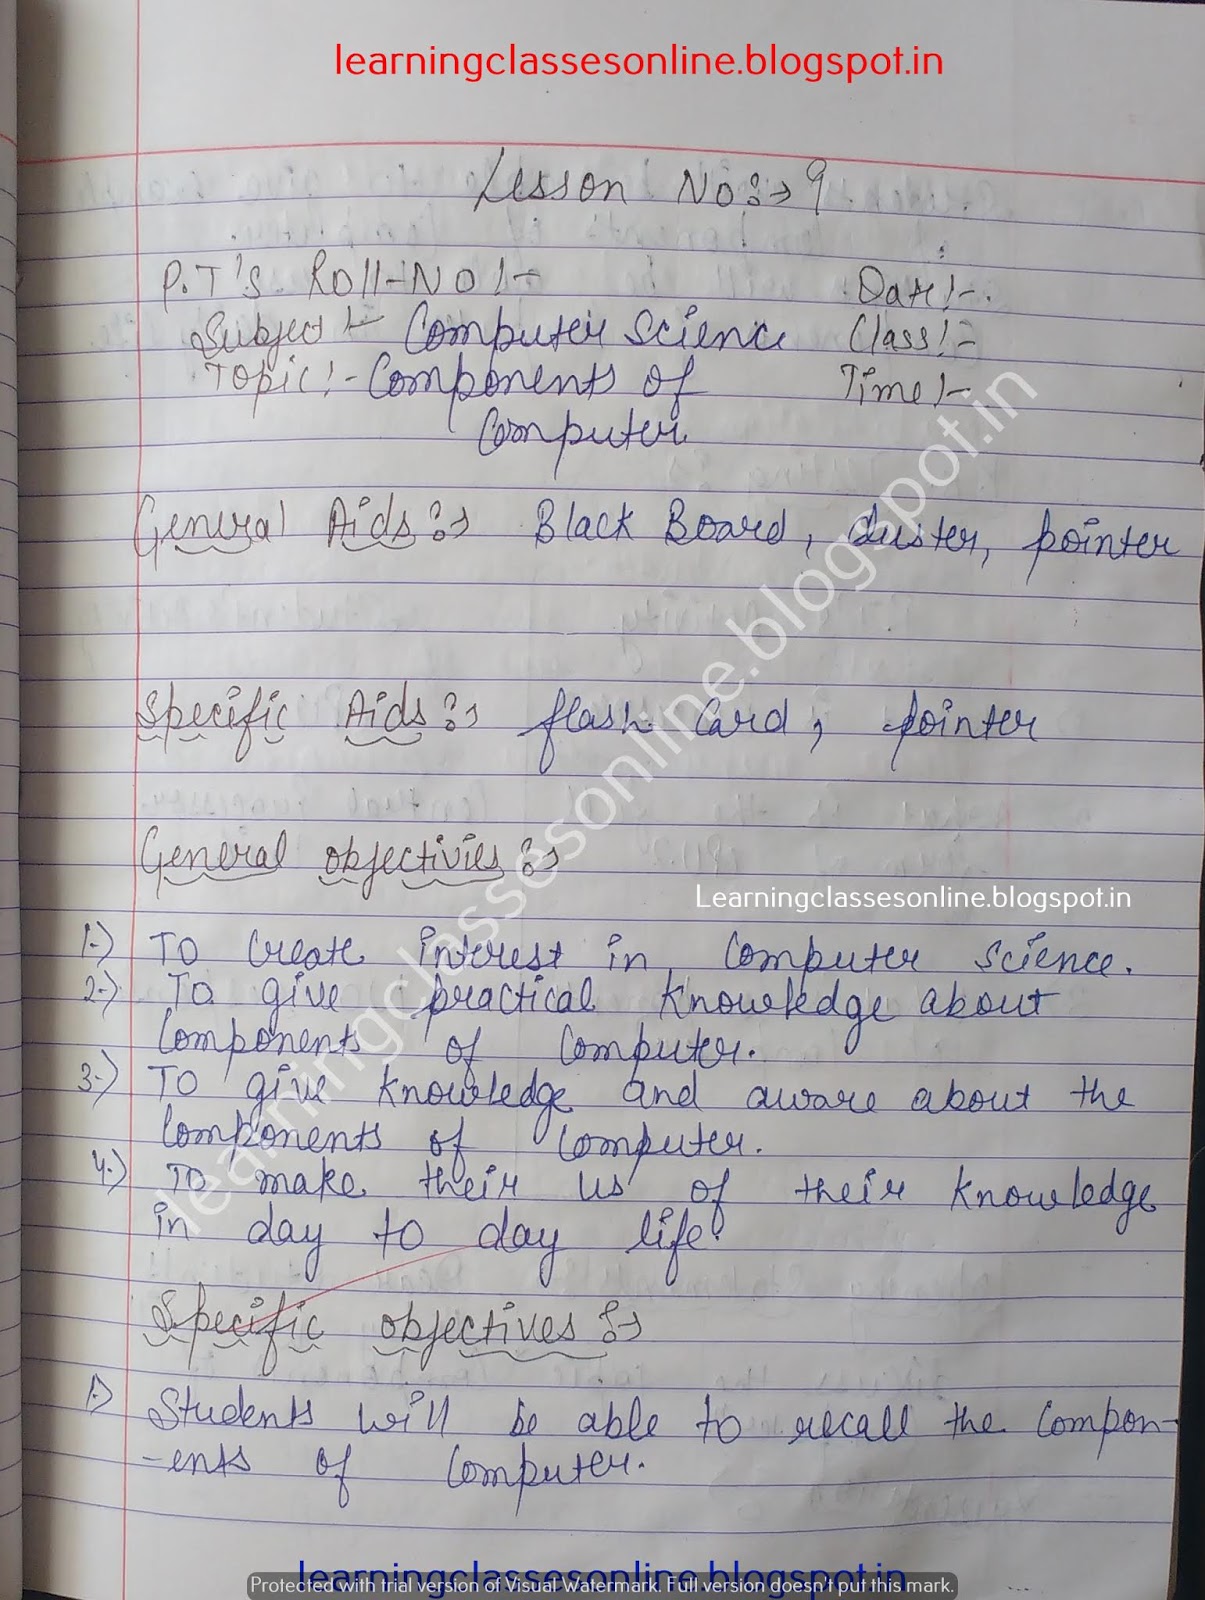 learningclassesonline.blogspot.in
Lesson No:→ 9
P.T's Roll-No!- Date!-
Subject!- Computer Science Class!-
Topic!- Components of Time!-
Computer
General Aids:→ Black Board, duster, pointer
Specific Aids:→ flash Card, pointer
General objectivies:→
Learningclassesonline.blogspot.in
1.) To Create interest in Computer Science.
2.) To give practical Knowledge about
Components of Computer.
3.) To give knowledge and aware about the
Components of Computer.
4.) To make their us of their Knowledge
in day to day life.
Specific objectives:→
1.) Students will be able to recall the Compon-
-ents of Computer.
learningclassesonline.blogspot.in
learningclassesonline.blogspot.in
Protected with trial version of Visual Watermark. Full version doesn't put this mark.